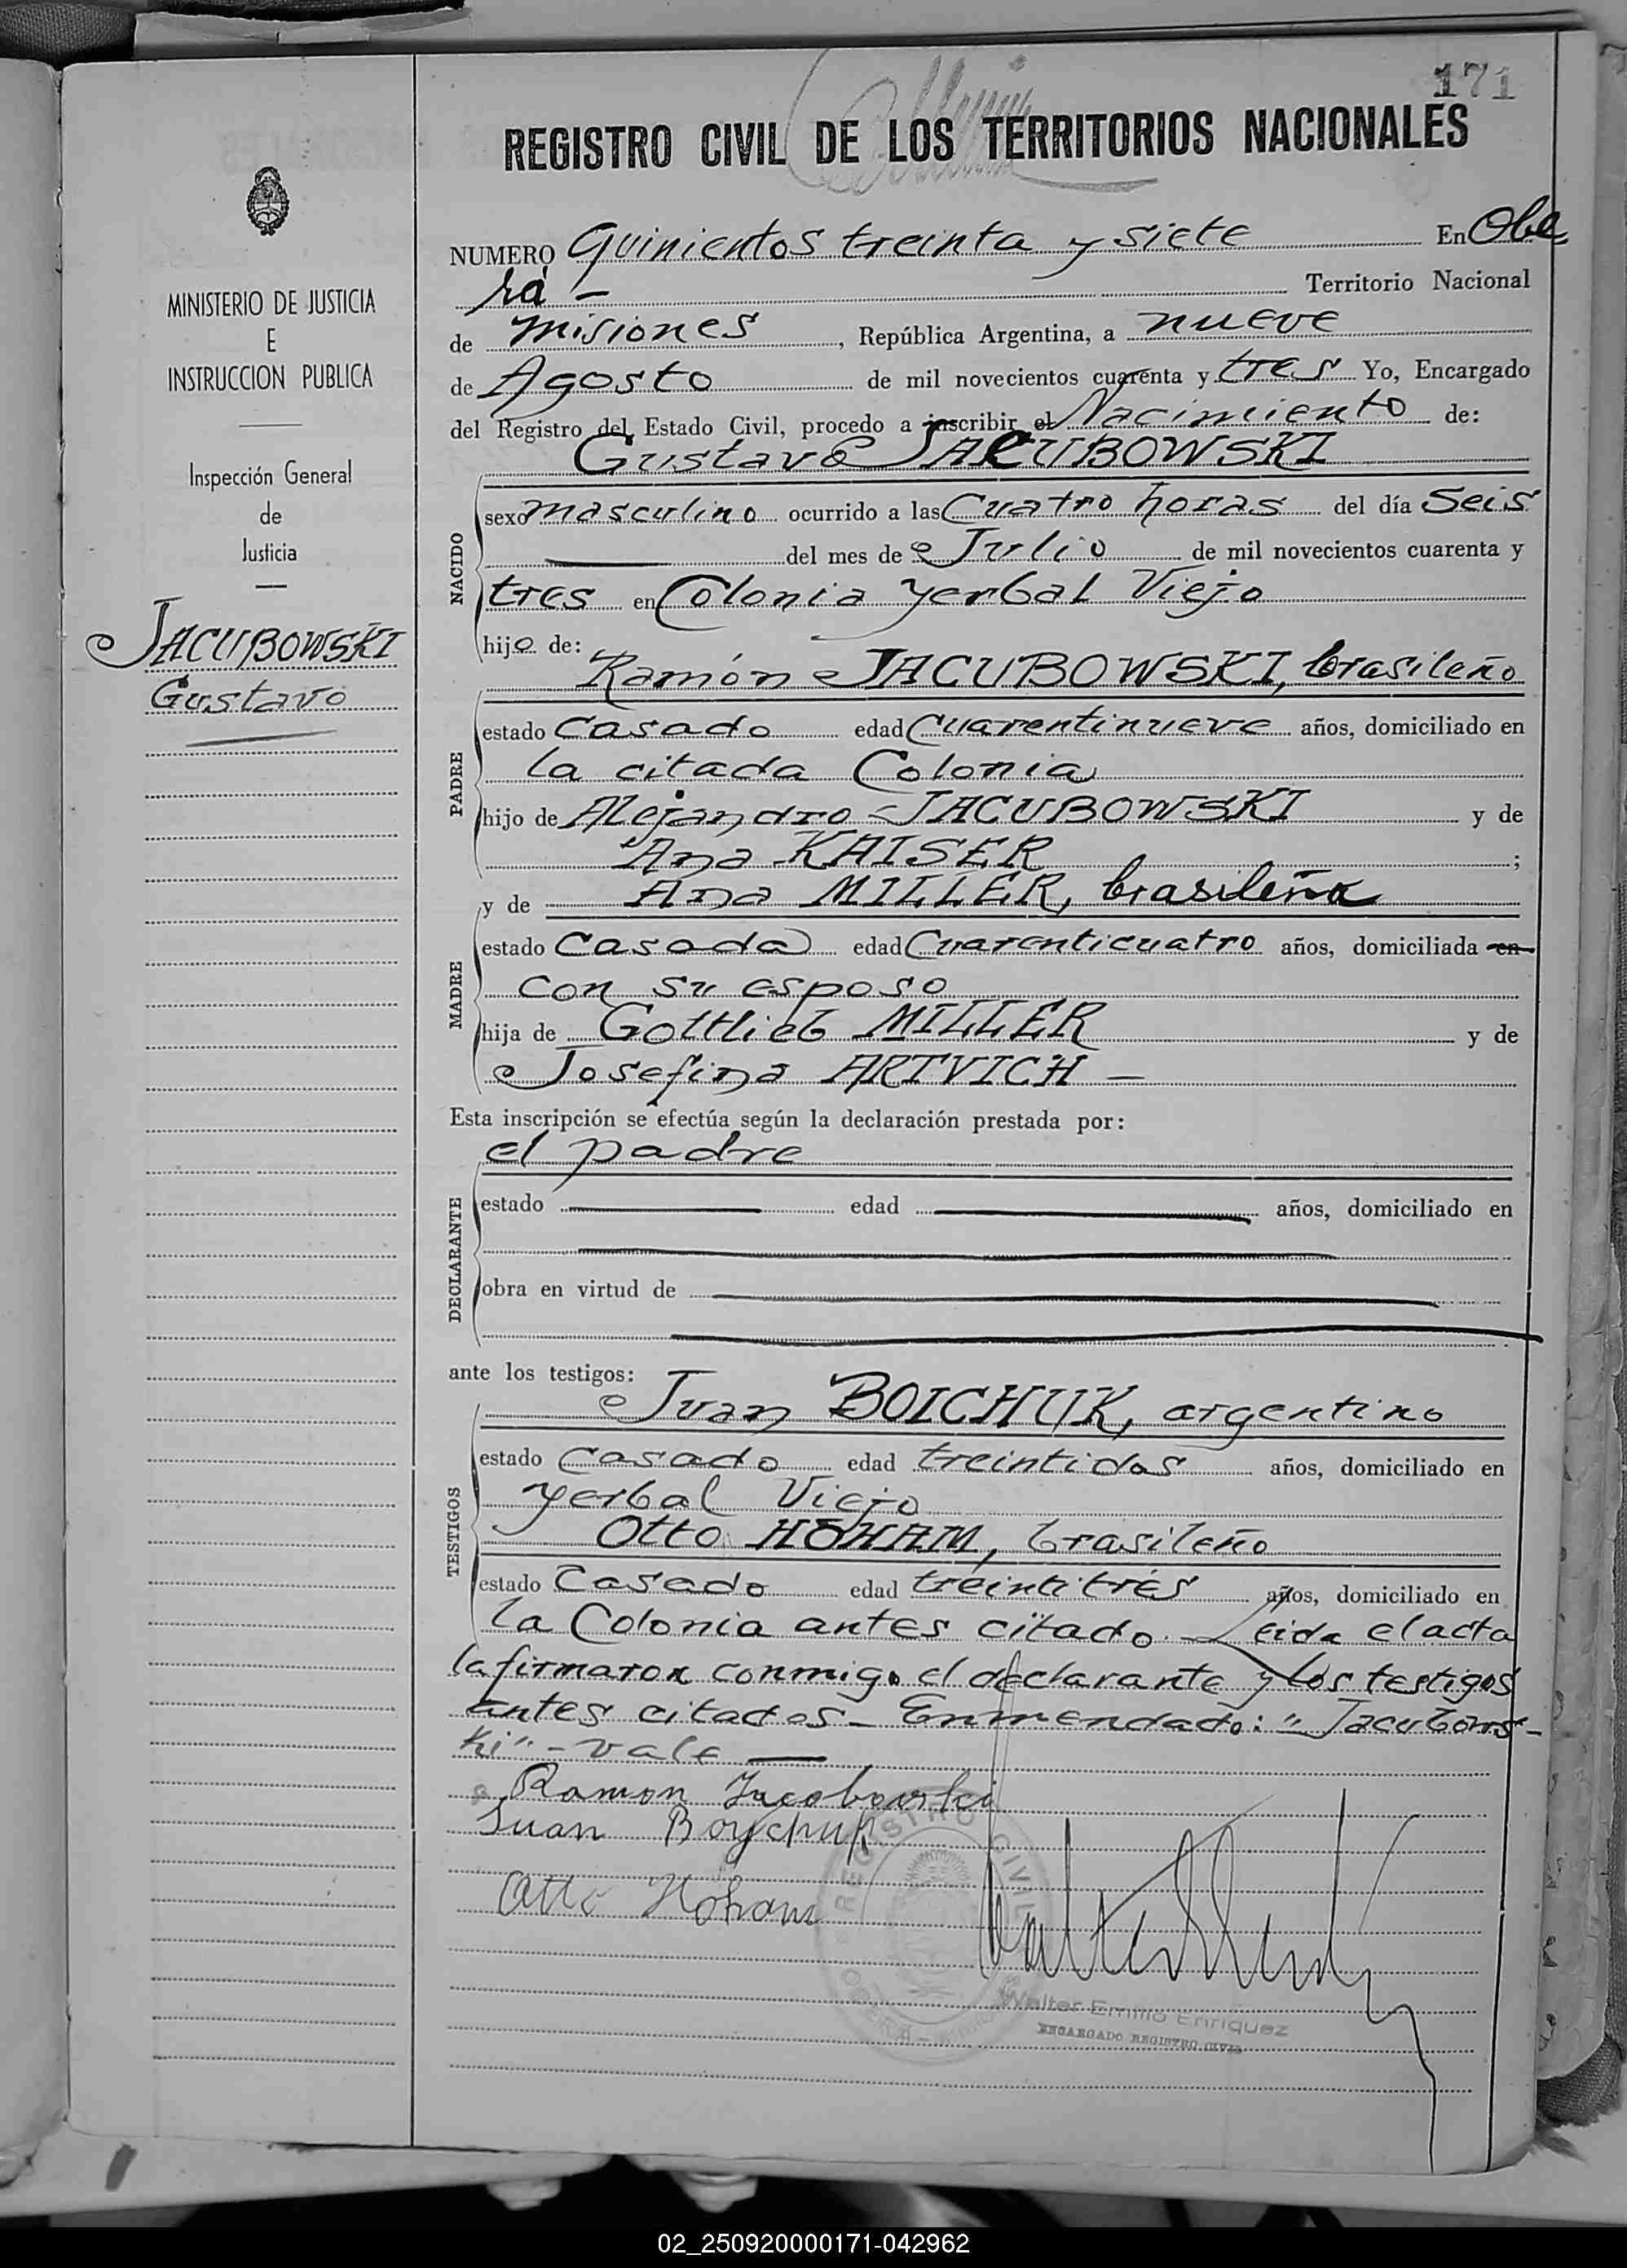 171
REGISTRO CIVIL DE LOS TERRITORIOS NACIONALES
MINISTERIO DE JUSTICIA
E
INSTRUCCION PUBLICA
Inspección General
de
Justicia
JACUBOWSKI
Gustavo
NUMERO Quinientos treinta y siete En Obe
rá - Territorio Nacional
de Misiones, República Argentina, a nueve
de Agosto de mil novecientos cuarenta y tres Yo, Encargado
del Registro del Estado Civil, procedo a inscribir el Nacimiento de:
Gustavo JACUBOWSKI
NACIDO
sexo masculino ocurrido a las Cuatro horas del día Seis
del mes de Julio de mil novecientos cuarenta y
tres en Colonia Yerbal Viejo
hijo de:
Ramón JACUBOWSKI, brasileño
PADRE
estado Casado edad Cuarentinueve años, domiciliado en
la citada Colonia
hijo de Alejandro JACUBOWSKI y de
Ana KAISER ;
y de Ana MILLER, brasileña
MADRE
estado Casada edad Cuarenticuatro años, domiciliada en
con su esposo
hija de Gottlieb MILLER y de
Josefina ARTVICH -
Esta inscripción se efectúa según la declaración prestada por:
el padre
DECLARANTE
estado edad años, domiciliado en
obra en virtud de
ante los testigos:
Juan BOICHUK, argentino
TESTIGOS
estado Casado edad treintidos años, domiciliado en
Yerbal Viejo
Otto HOHAM, brasileño
estado Casado edad treintitrés años, domiciliado en
la Colonia antes citado. - Leida el acta
la firmaron conmigo el declarante y los testigos
antes citados - Enmendado: "Jacubows-
ki" - vale
Ramon Jacobowski
Juan Boychuk
Otto Hoham
REGISTRO CIVIL
Walter Emilio Enriquez
ENCARGADO REGISTRO CIVIL
02_250920000171-042962